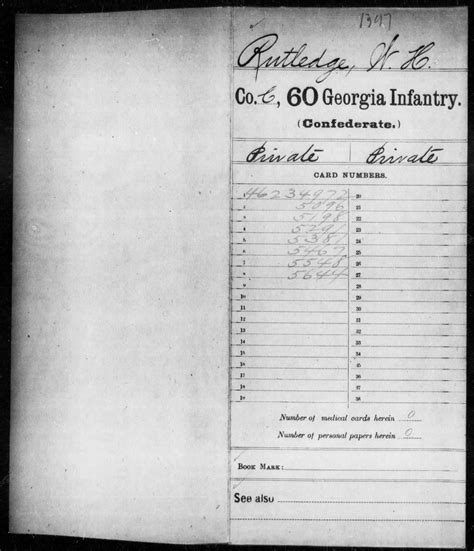 1397
Rutledge, W. H.
Co. C, 60 Georgia Infantry.
(Confederate.)
Private Private
CARD NUMBERS.
1 46234972 20
2 5096 21
3 5198 22
4 5291 23
5 5381 24
6 5467 25
7 5548 26
8 5644 27
9 28
10 29
11 30
12 31
13 32
14 33
15 34
16 35
17 36
18 37
19 38
Number of medical cards herein 0
Number of personal papers herein 0
BOOK MARK:
See also